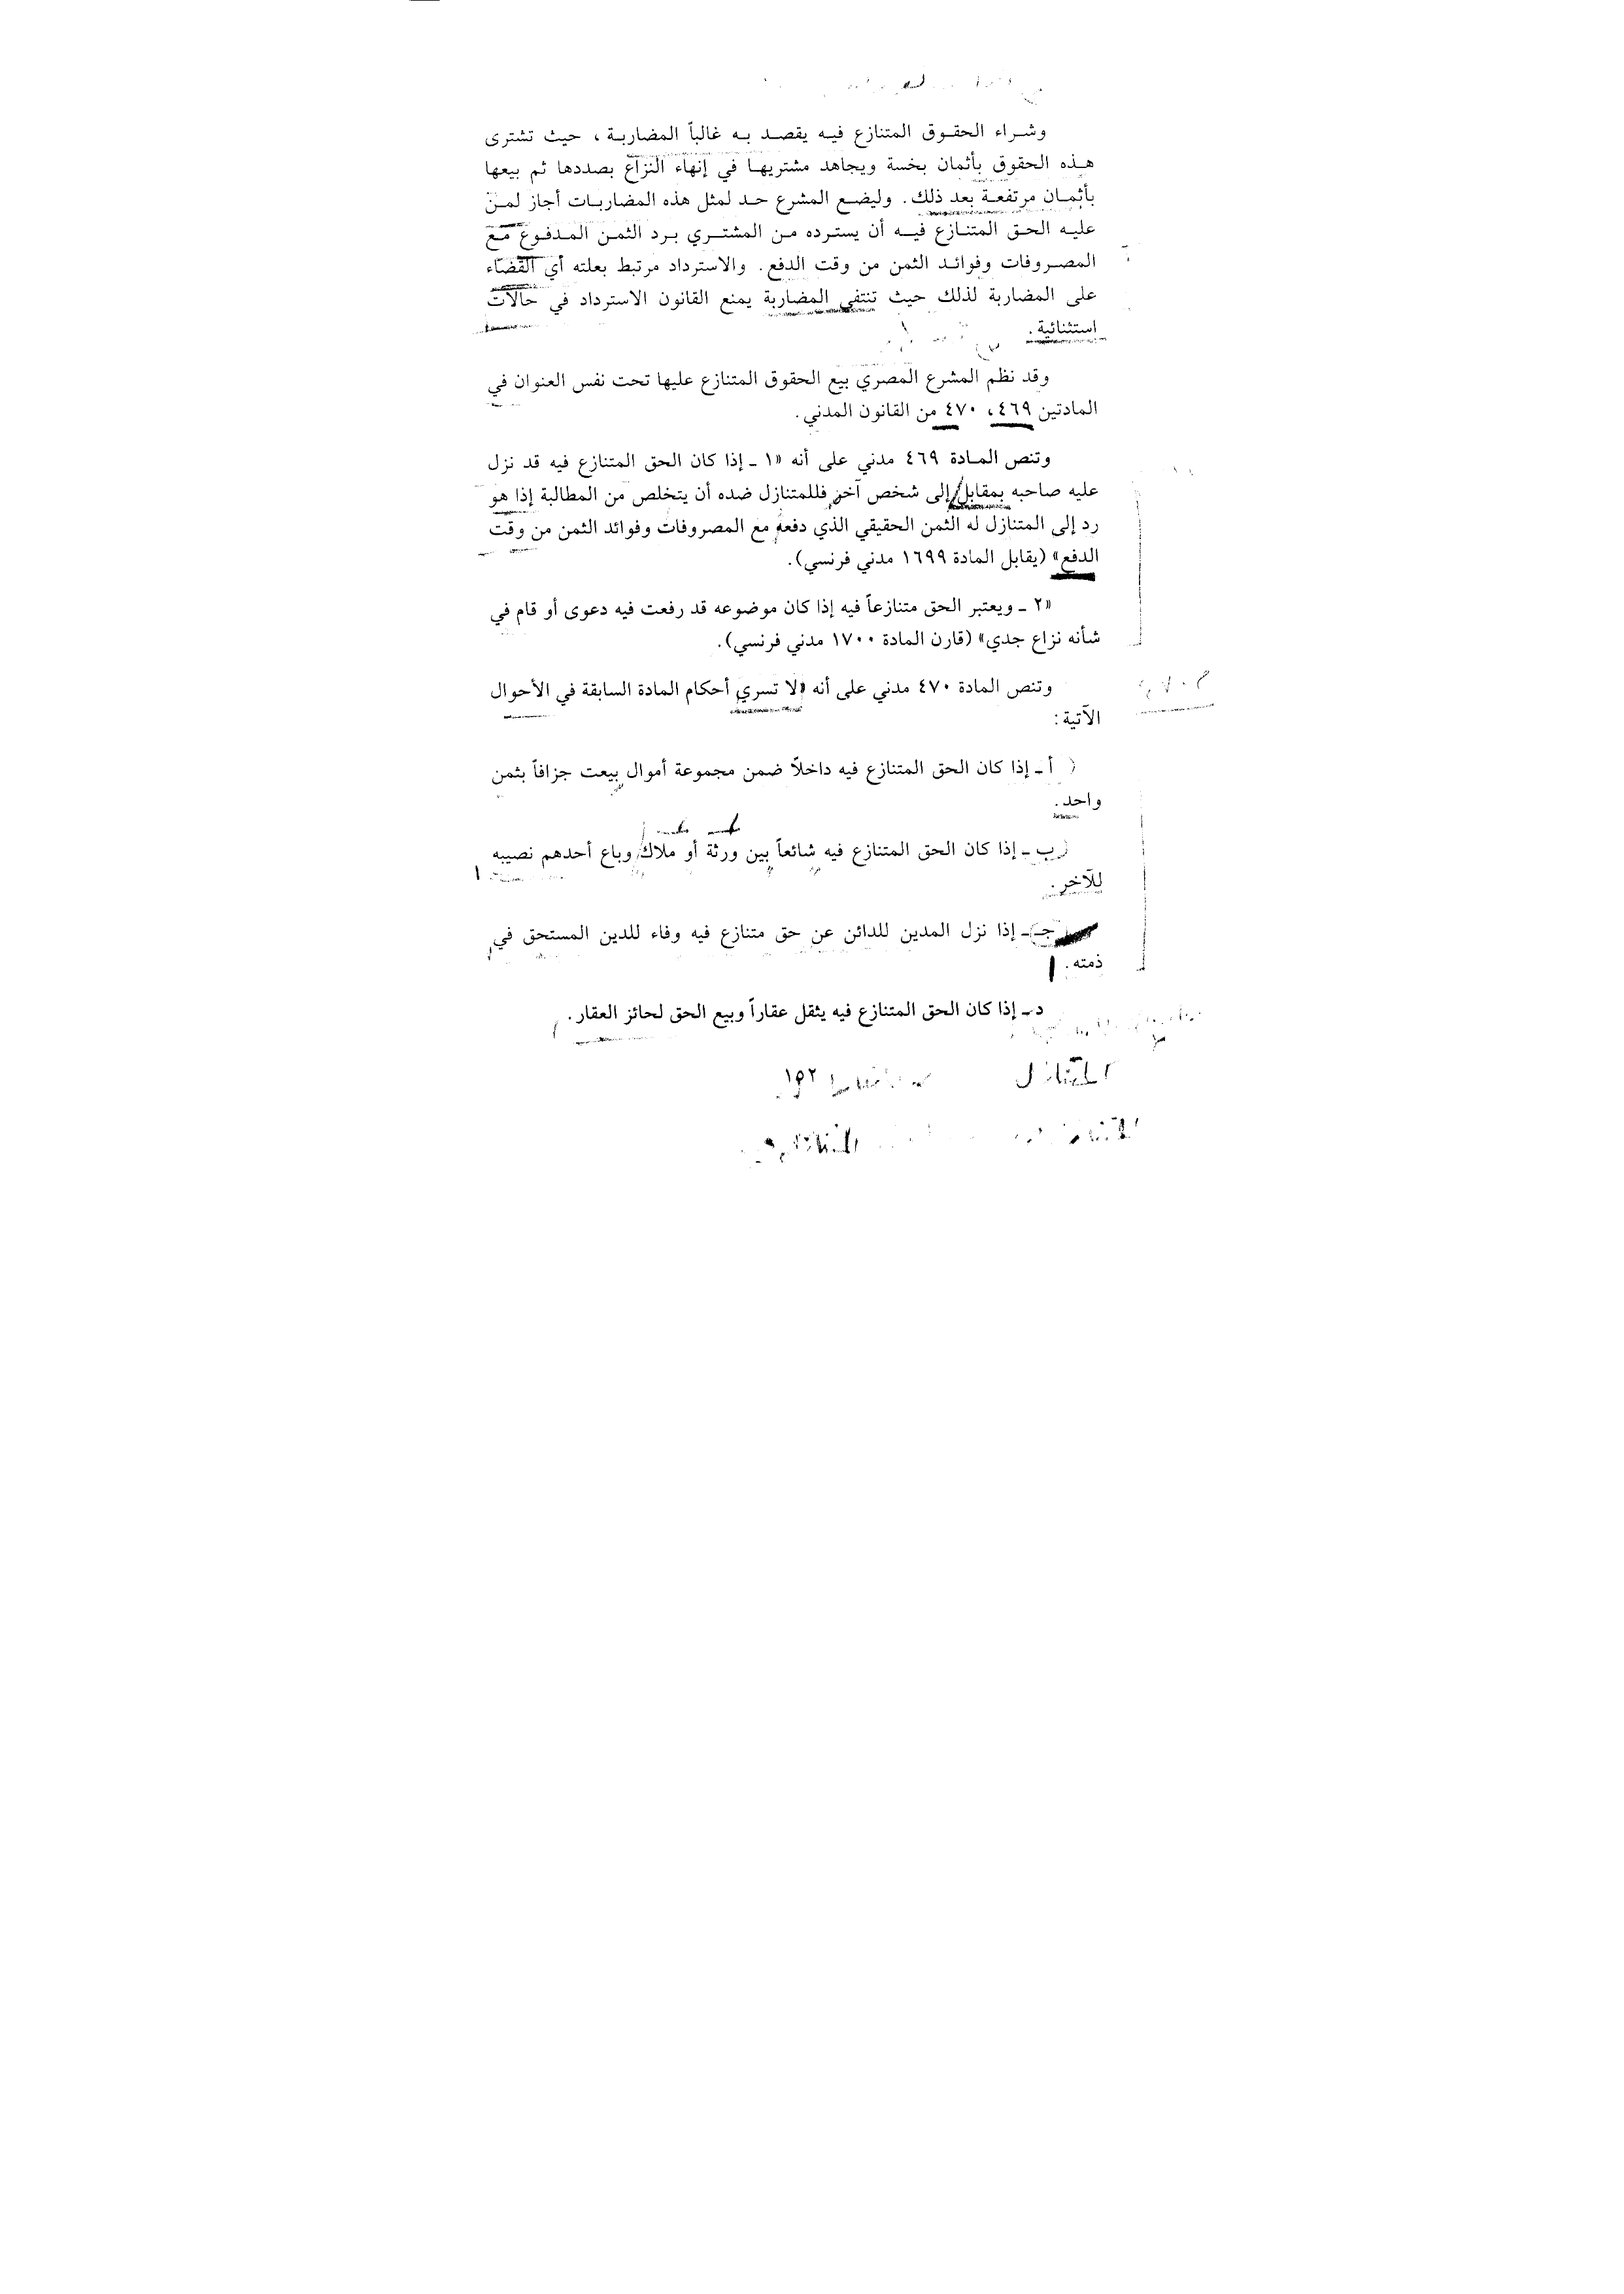 وشراء الحقوق المتنازع فيه يقصد به غالباً المضاربة ، حيث تشترى
هذه الحقوق بأثمان بخسة ويجاهد مشتريها في إنهاء النزاع بصددها ثم بيعها
بأثمان مرتفعة بعد ذلك. وليضع المشرع حد لمثل هذه المضاربات أجاز لمن
عليه الحق المتنازع فيه أن يسترده من المشتري برد الثمن المدفوع مع
المصروفات وفوائد الثمن من وقت الدفع. والاسترداد مرتبط بعلته أي القضاء
على المضاربة لذلك حيث تنتفي المضاربة يمنع القانون الاسترداد في حالات
استثنائية.
وقد نظم المشرع المصري بيع الحقوق المتنازع عليها تحت نفس العنوان في
المادتين ٤٦٩، ٤٧٠ من القانون المدني.
وتنص المادة ٤٦٩ مدني على أنه «١ ـ إذا كان الحق المتنازع فيه قد نزل
عليه صاحبه بمقابل إلى شخص آخر فللمتنازل ضده أن يتخلص من المطالبة إذا هو
رد إلى المتنازل له الثمن الحقيقي الذي دفعه مع المصروفات وفوائد الثمن من وقت
الدفع» (يقابل المادة ١٦٩٩ مدني فرنسي).
«٢ ـ ويعتبر الحق متنازعاً فيه إذا كان موضوعه قد رفعت فيه دعوى أو قام في
شأنه نزاع جدي» (قارن المادة ١٧٠٠ مدني فرنسي).
وتنص المادة ٤٧٠ مدني على أنه «لا تسري أحكام المادة السابقة في الأحوال
الآتية:
أ ـ إذا كان الحق المتنازع فيه داخلاً ضمن مجموعة أموال بيعت جزافاً بثمن
واحد.
ب ـ إذا كان الحق المتنازع فيه شائعاً بين ورثة أو ملاك وباع أحدهم نصيبه
للآخر.
جـ ـ إذا نزل المدين للدائن عن حق متنازع فيه وفاء للدين المستحق في
ذمته.
د ـ إذا كان الحق المتنازع فيه يثقل عقاراً وبيع الحق لحائز العقار.